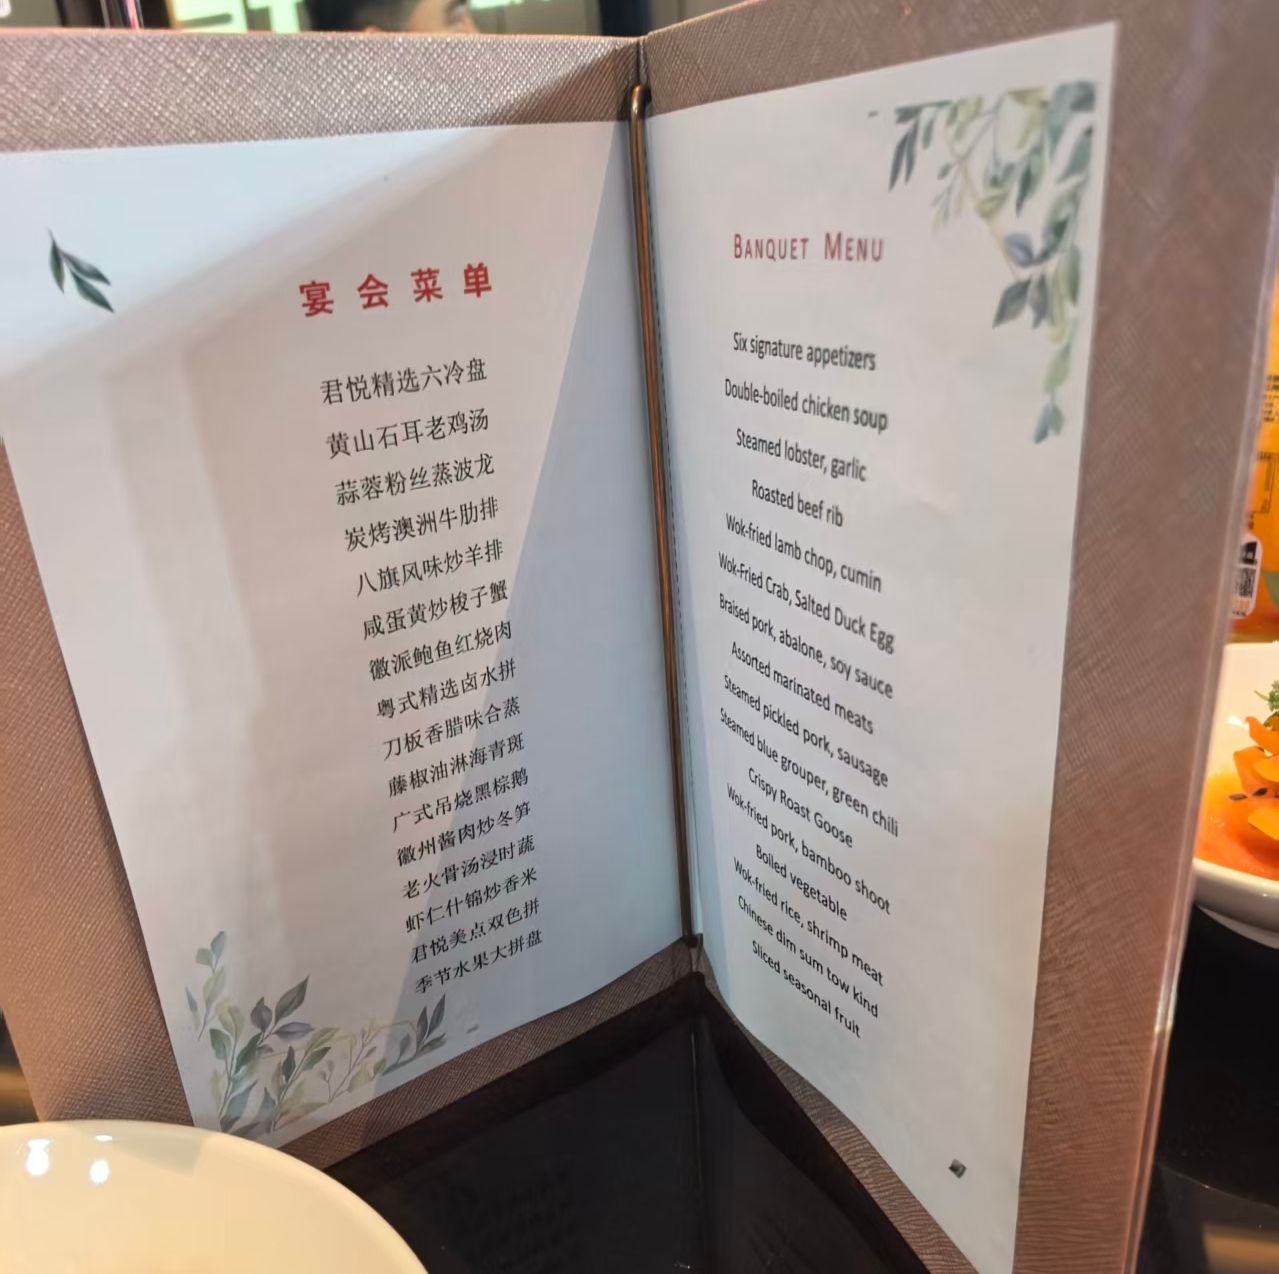 宴会菜单
君悦精选六冷盘
黄山石耳老鸡汤
蒜蓉粉丝蒸波龙
炭烤澳洲牛肋排
八旗风味炒羊排
咸蛋黄炒梭子蟹
徽派鲍鱼红烧肉
粤式精选卤水拼
刀板香腊味合蒸
藤椒油淋海青斑
广式吊烧黑棕鹅
徽州酱肉炒冬笋
老火骨汤浸时蔬
虾仁什锦炒香米
君悦美点双色拼
季节水果大拼盘
BANQUET MENU
Six signature appetizers
Double-boiled chicken soup
Steamed lobster, garlic
Roasted beef rib
Wok-fried lamb chop, cumin
Wok-Fried Crab, Salted Duck Egg
Braised pork, abalone, soy sauce
Assorted marinated meats
Steamed pickled pork, sausage
Steamed blue grouper, green chili
Crispy Roast Goose
Wok-fried pork, bamboo shoot
Boiled vegetable
Wok-fried rice, shrimp meat
Chinese dim sum tow kind
Sliced seasonal fruit